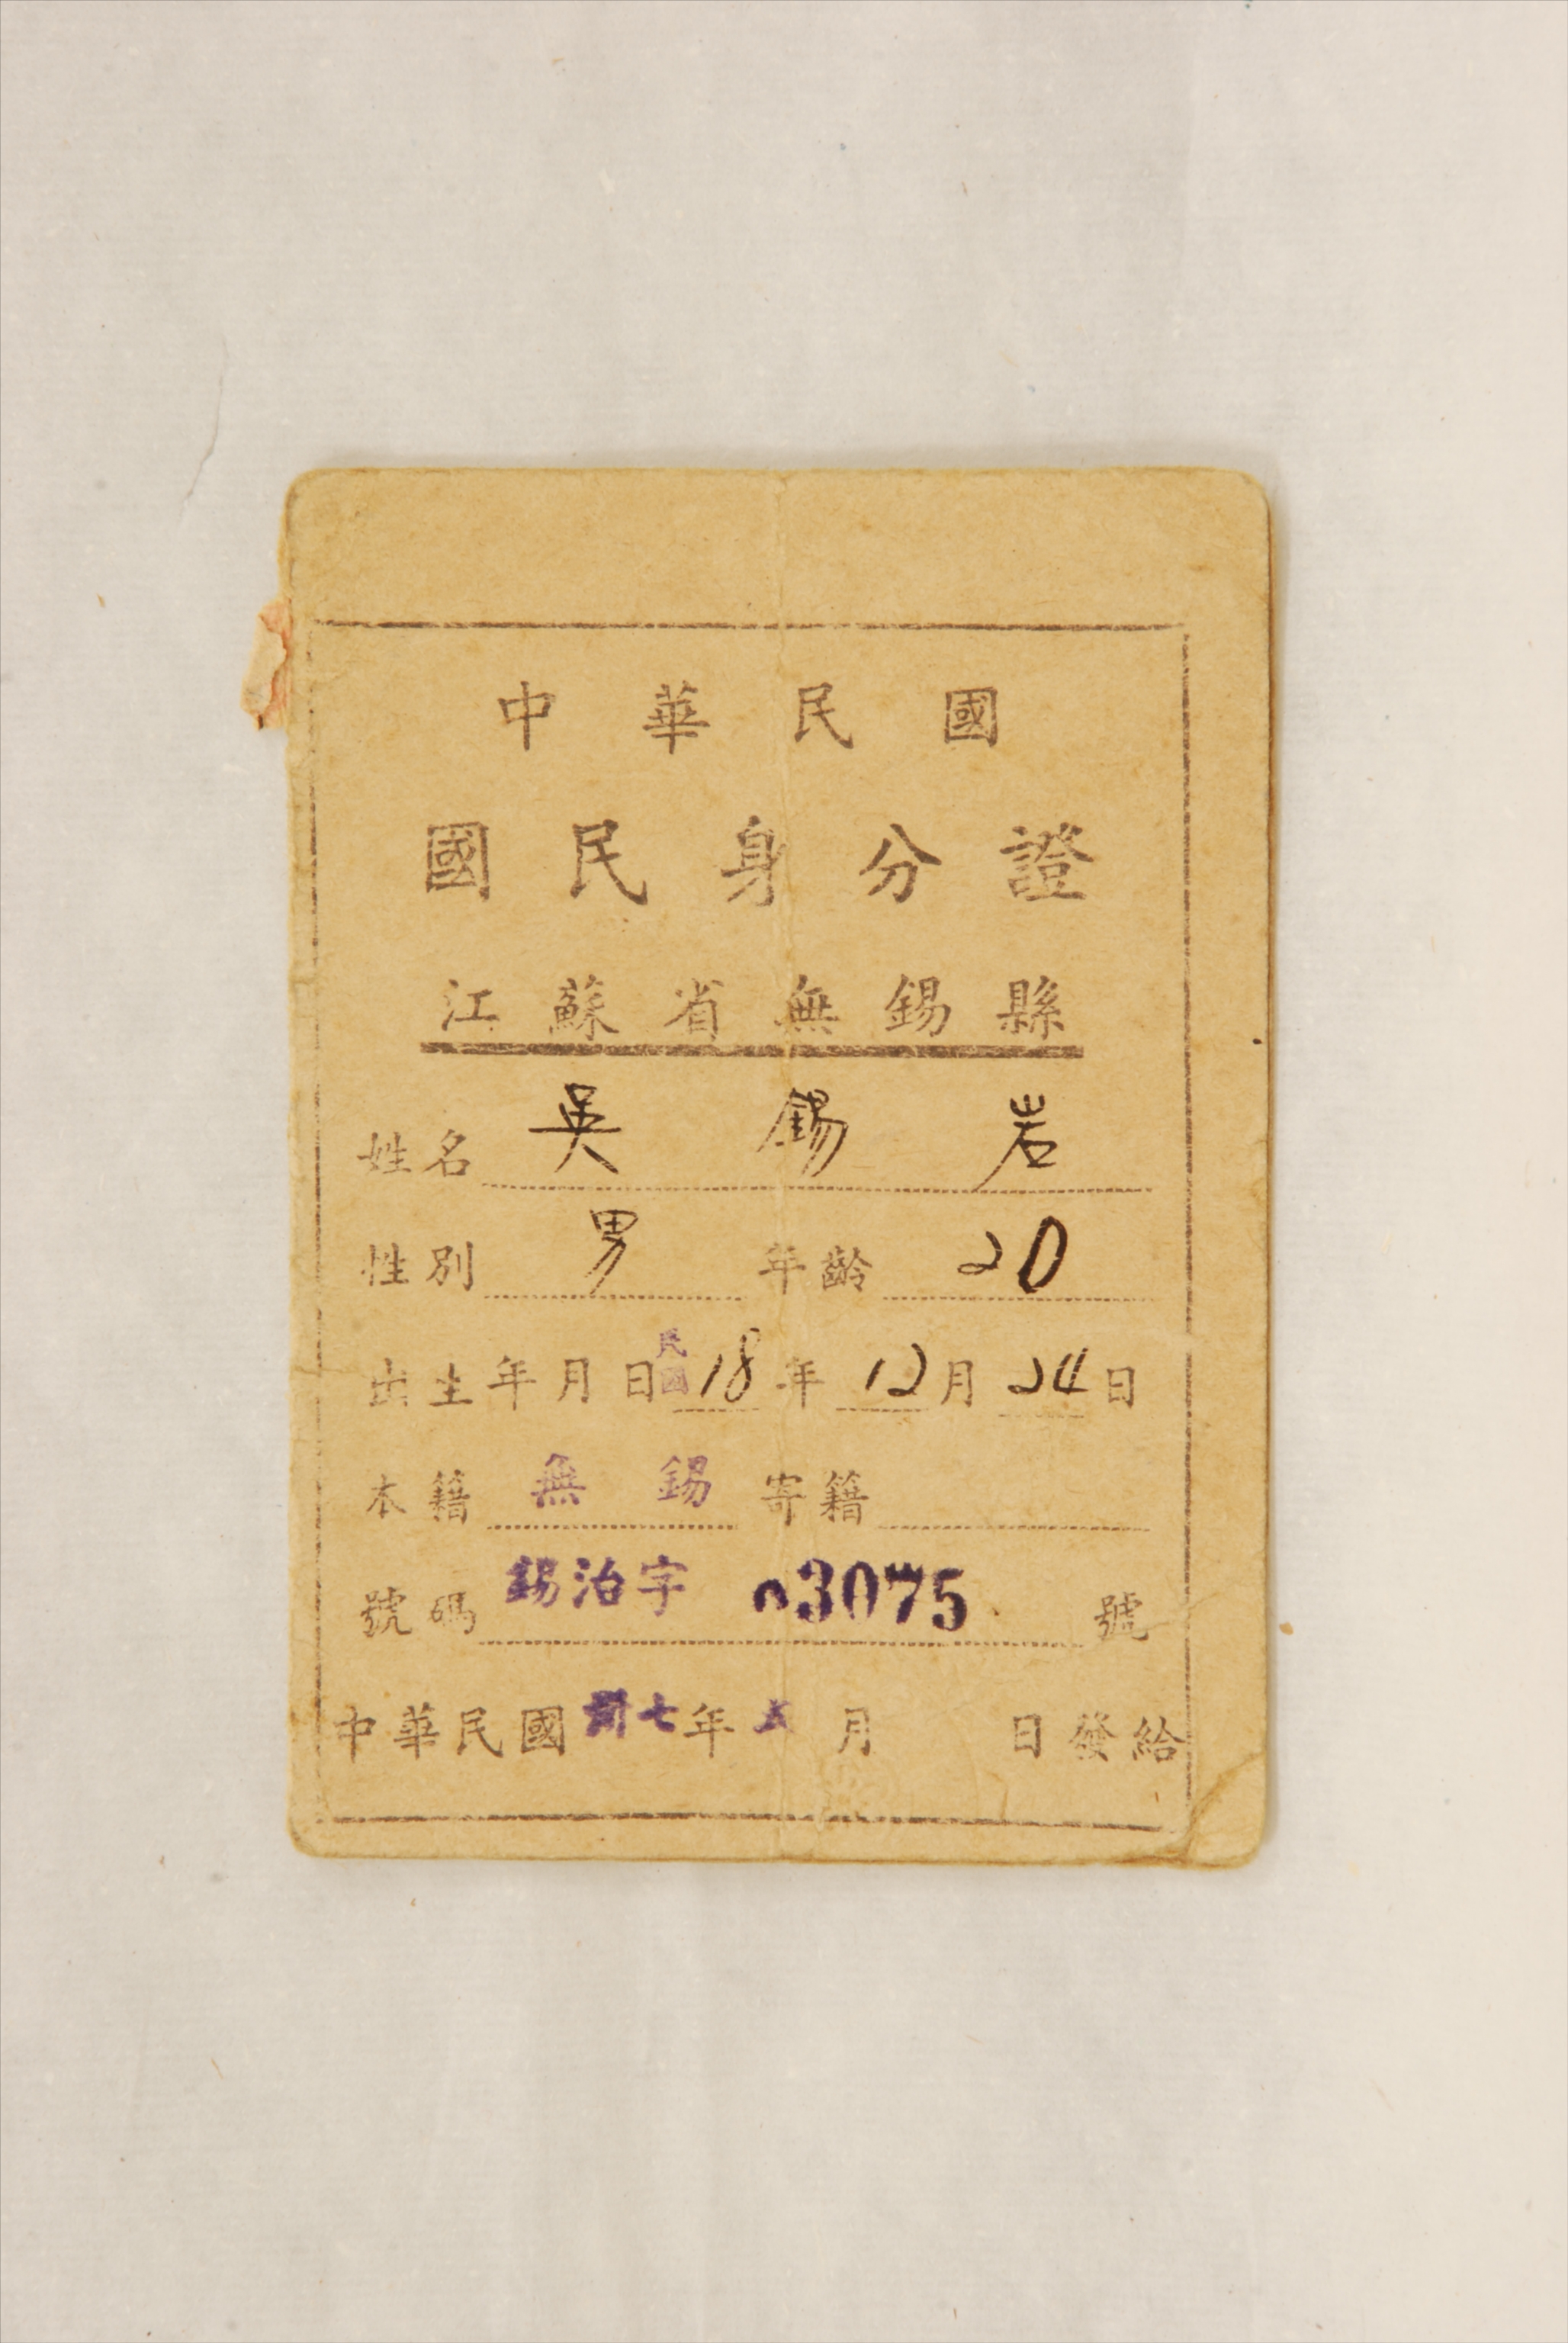 中華民國
國民身分證
江蘇省無錫縣
姓名 吳錫岩
性別 男 年齡 20
出生年月日 民國 18 年 12 月 24 日
本籍 無錫 寄籍
號碼 錫治字 03075 號
中華民國卅七年五月 日發給